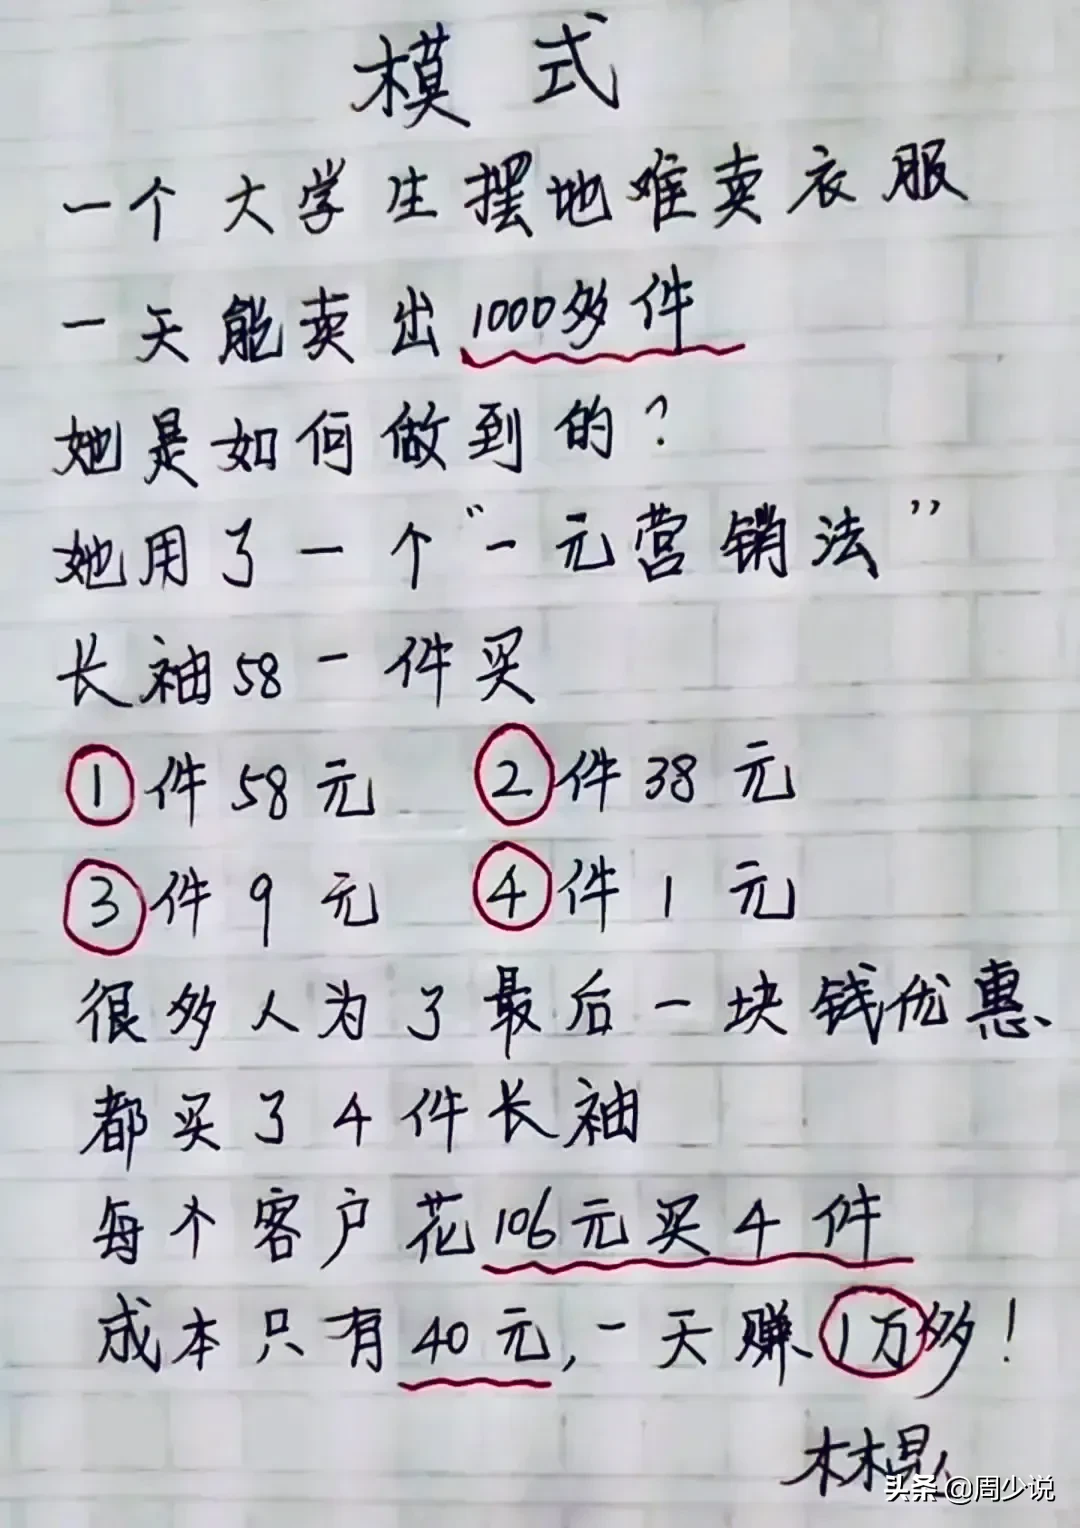 模式
一个大学生摆地难卖衣服
一天能卖出1000多件
她是如何做到的?
她用了一个“一元营销法”
长袖58一件买
①件58元 ②件38元
③件9元 ④件1元
很多人为了最后一块钱优惠
都买了4件长袖
每个客户花106元买4件
成本只有40元,一天赚1万多!
头条@周少说